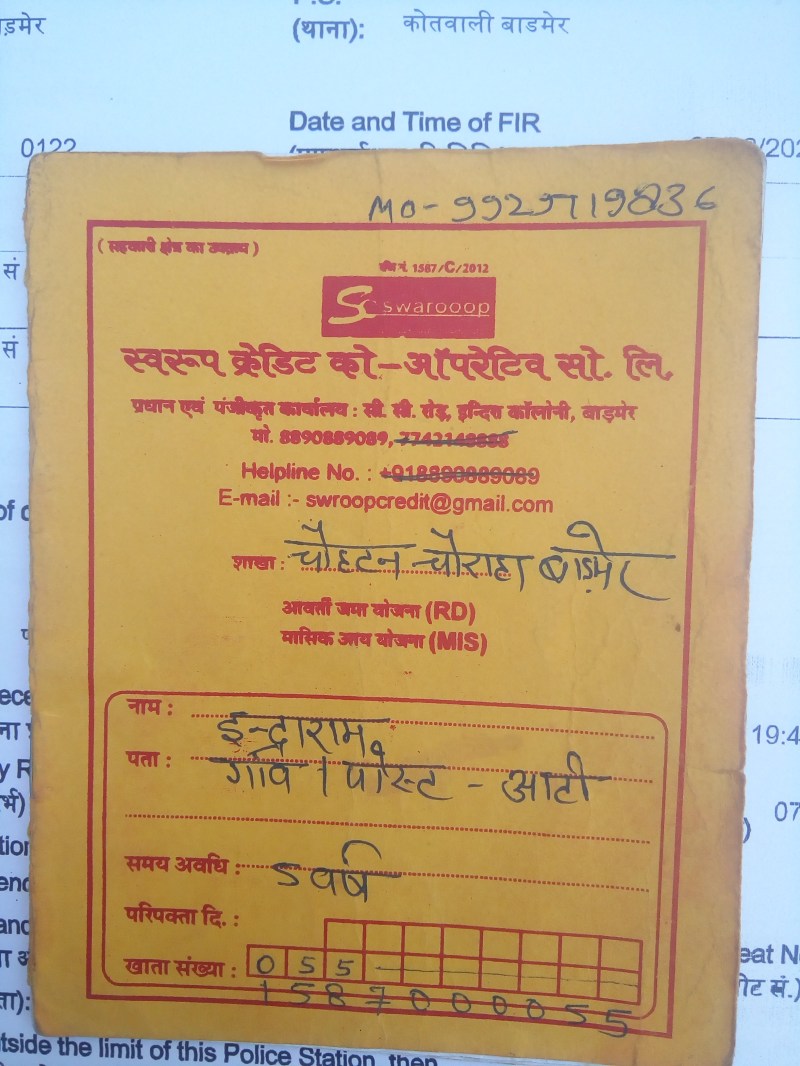 P.S.
ाड़मेर
(थाना): कोतवाली बाडमेर
Date and Time of FIR
0122
सं
सं
MO-9929719836
( सहकारी क्षेत्र का उपक्रम )
रजि नं. 1587/C/2012
swarooop
स्वरूप क्रेडिट को-ऑपरेटिव सो. लि.
प्रधान एवं पंजीकृत कार्यालय : सी. सी. रोड़, इन्दिरा कॉलोनी, बाड़मेर
मो. 8890889089, 7742148888
Helpline No. : +918890889089
E-mail :- swroopcredit@gmail.com
शाखा: चौहटन चौराहा बाड़मेर
आवर्ती जमा योजना (RD)
मासिक आय योजना (MIS)
नाम : इन्द्राराम
पता : गाँव / पोस्ट - आटी
समय अवधि : 5 वर्ष
परिपक्वता दि. :
खाता संख्या : 055
1587000055
19:4
07
tside the limit of this Police Station, then